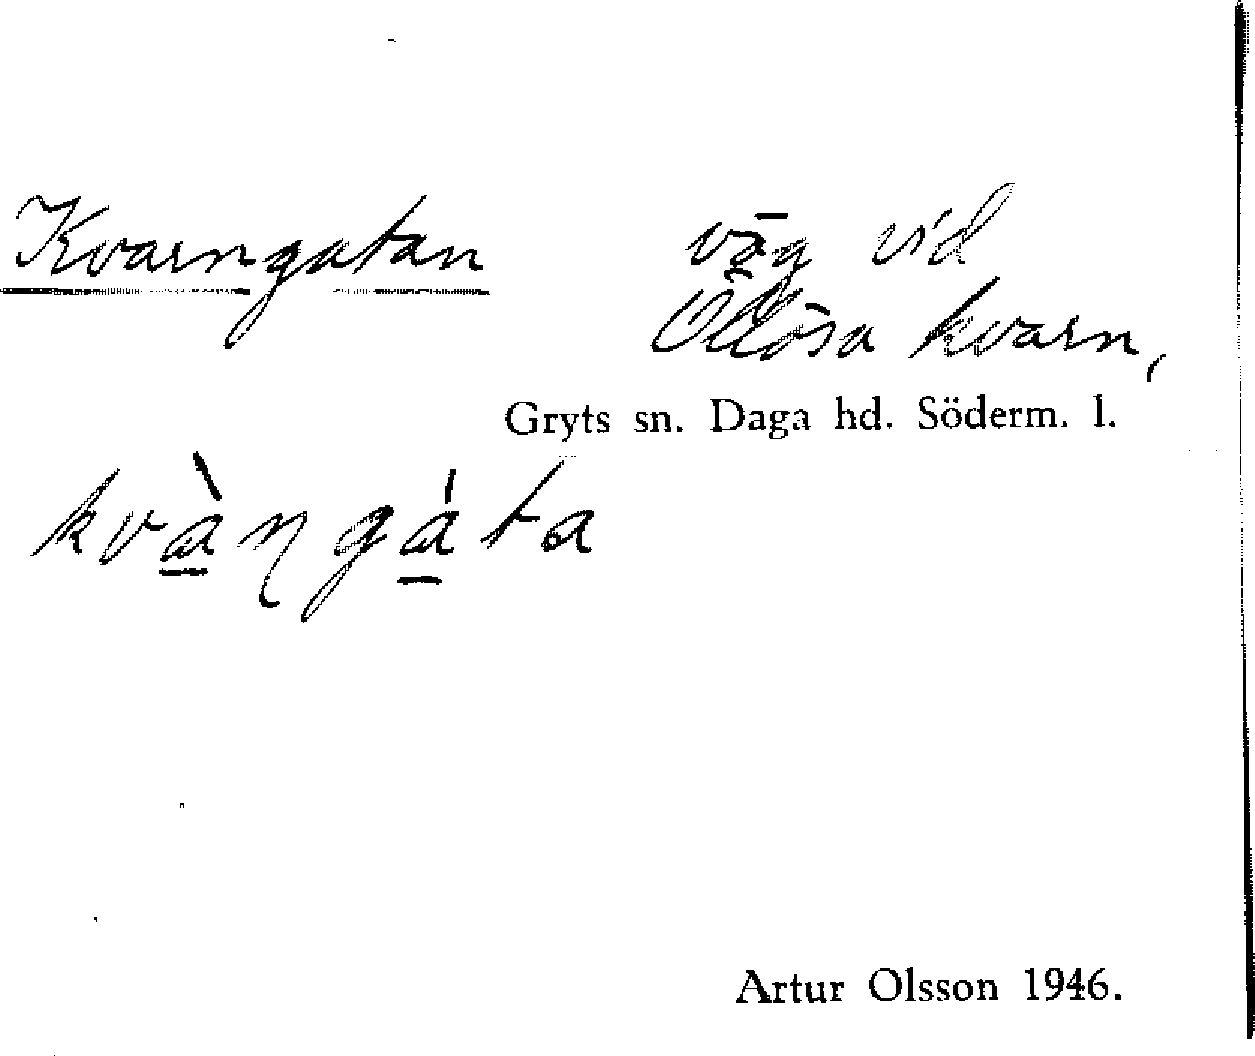 Kvarngatan väg vid
Öllösa kvarn,
Gryts sn. Daga hd. Söderm. l.
kvàŋgáta
Artur Olsson 1946.